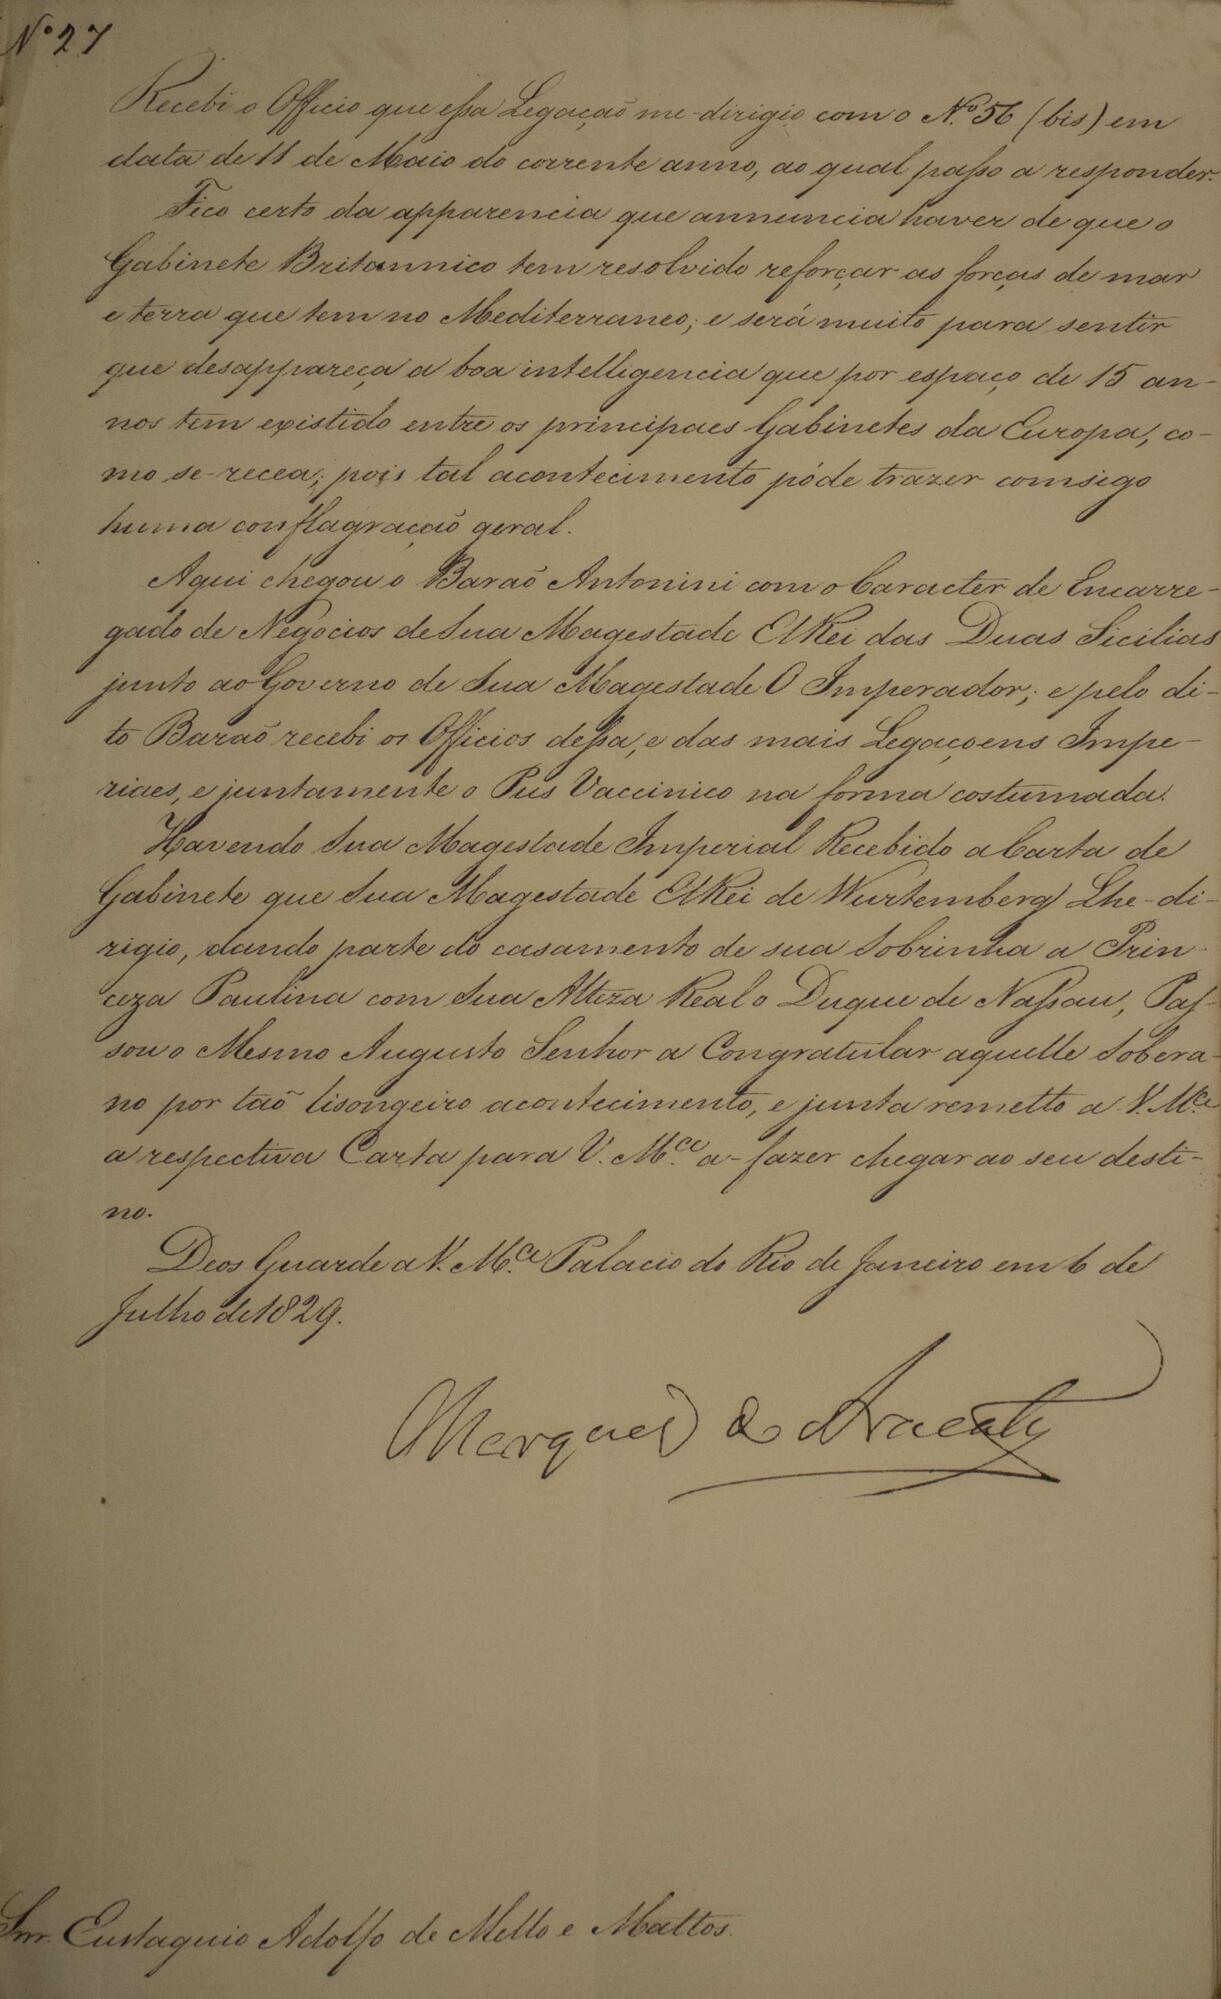 Nº 27
Recebi o Officio que essa Legação me-dirigio com o Nº 56 (bis) em
data de 11 de Maio do corrente anno, ao qual passo a responder.
Fico certo da apparencia que annuncia haver de que o
Gabinete Britannico tem resolvido reforçar as forças de mar
e terra que tem no Mediterraneo; e será muito para sentir
que desappareça a boa intelligencia que por espaço de 15 an-
nos tem existido entre os principaes Gabinetes da Europa, co-
mo se-recea; pois tal acontecimento póde trazer comsigo
huma conflagração geral.
Aqui chegou o Barão Antonini com o Caracter de Encarre-
gado de Negocios de Sua Magestade ElRei das Duas Sicilias
junto ao Governo de Sua Magestade O Imperador; e pelo di-
to Barão recebi os Officios dessa, e das mais Legaçoens Impe-
riaes, e juntamente o Pus Vaccinico na forma costumada.
Havendo Sua Magestade Imperial Recebido a Carta de
Gabinete que Sua Magestade ElRei de Wurtemberg Lhe-di-
rigio, dando parte do casamento de sua Sobrinha a Prin-
ceza Paulina com Sua Alteza Real o Duque de Nassau, Pas-
sou o Mesmo Augusto Senhor a Congratular aquelle Sobera-
no por tão lisongeiro acontecimento, e junta remetto a V. Mce
a respectiva Carta para V. Mce a-fazer chegar ao seu desti-
no.
Deos Guarde a V. Mce Palacio do Rio de Janeiro em 6 de
Julho de 1829.
Marquez de Aracaty
Snr. Eustaquio Adolfo de Mello e Mattos.